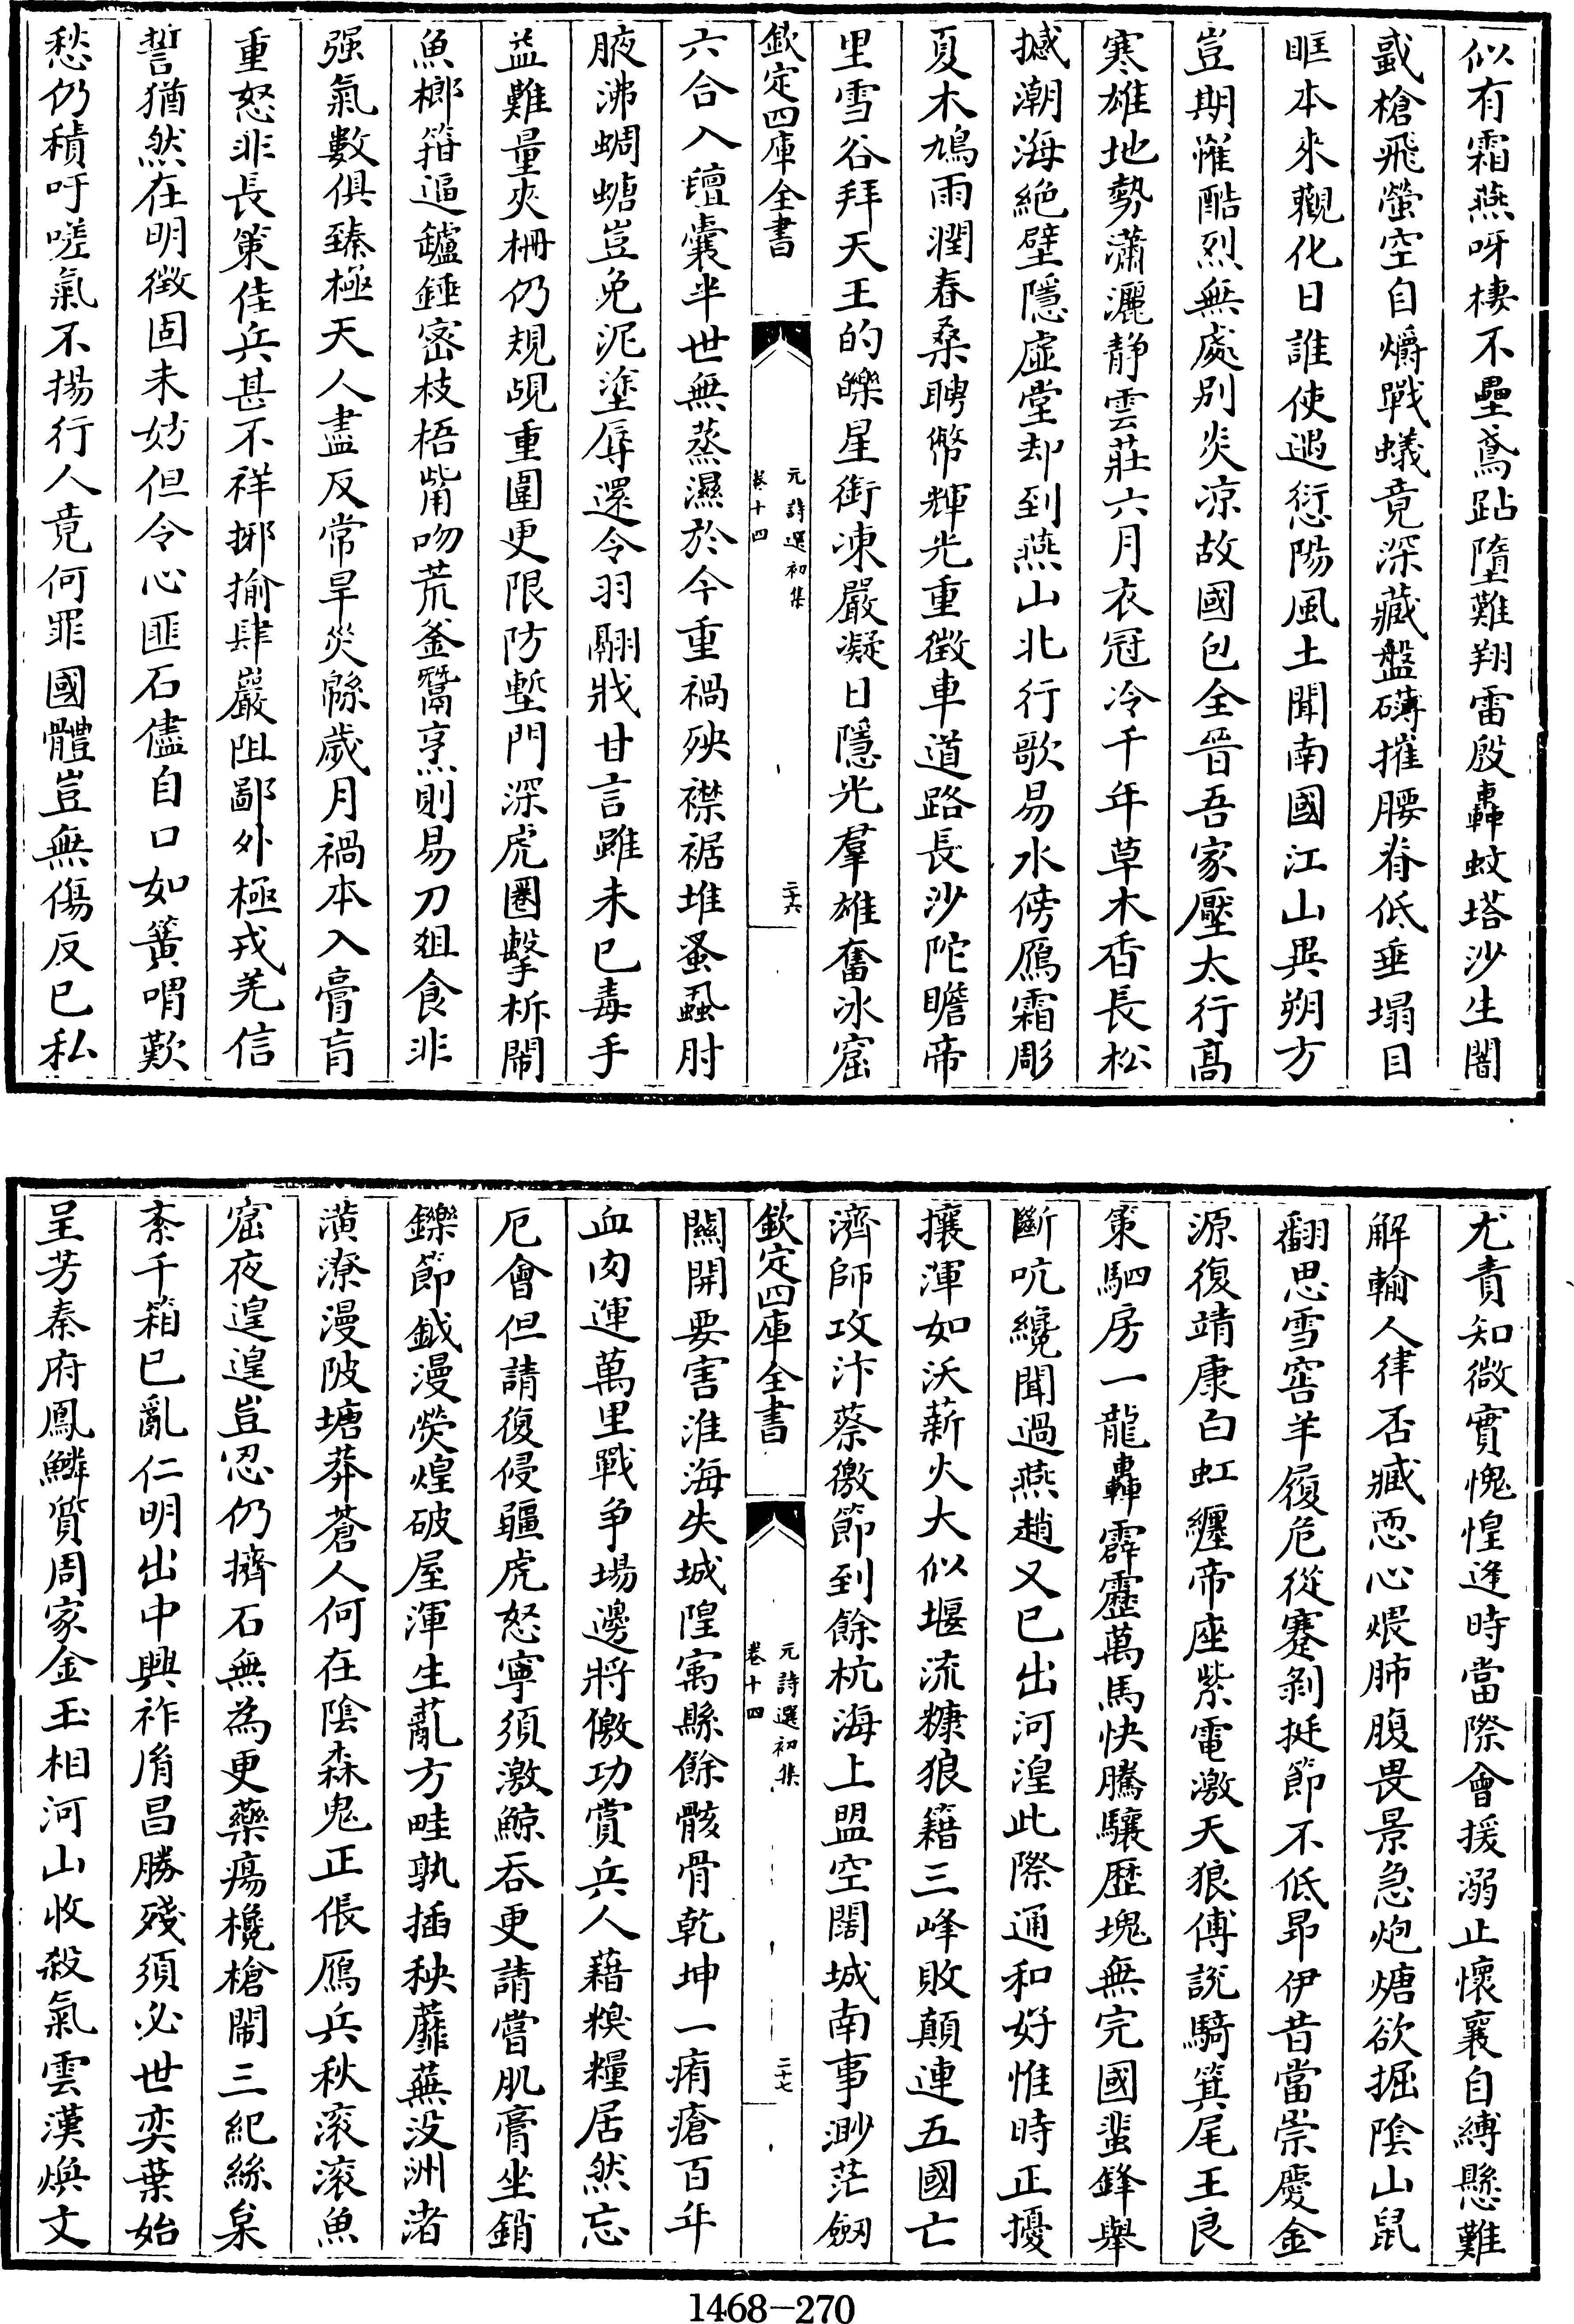 似有霜燕呀棲不壘鳶跕墮難翔雷殷轟蚊塔沙生闇
蜮槍飛螢空自爝戰蟻竟深藏盤礴摧腰脊低垂塌目
眶本來觀化日誰使遇愆陽風土聞南國江山異朔方
豈期惟酷烈無處別炎涼故國包全晉吾家壓太行高
寒雄地勢瀟灑靜雲莊六月衣冠冷千年草木香長松
撼潮海絕壁隱虛堂却到燕山北行歌易水傍鴈霜彫
夏木鳩雨潤春桑聘幣輝光重徵車道路長沙陀瞻帝
里雪谷拜天王的皪星街凍嚴凝日隱光羣雄奮冰窟
欽定四庫全書
元詩選初集
卷十四
二十六
六合入氊囊半世無蒸濕於今重禍殃襟裾堆蚤蝨肘
腋沸蜩螗豈免泥塗辱還令羽翮戕甘言雖未已毒手
益難量夾柵仍規覘重圍更限防塹門深虎圈擊柝鬧
魚榔箝逼鑪錘密枝梧觜吻荒釜鬵烹則易刀俎食非
强氣數俱臻極天人盡反常旱災緜歲月禍本入膏肓
重怒非長策佳兵甚不祥揶揄肆巖阻鄙外極戎羌信
誓猶然在明徵固未妨但令心匪石儘自口如簧喟歎
愁仍積吁嗟氣不揚行人竟何罪國體豈無傷反已私
尤責知微實愧惶逢時當際會援溺止懷襄自縛懸難
解輸人律否臧恧心煨肺腹畏景急炮煻欲掘陰山鼠
翻思雪窖羊履危從蹇剝挺節不低昂伊昔當崇慶金
源復靖康白虹纏帝座紫電激天狼傅說騎箕尾王良
策駟房一龍轟霹靂萬馬快騰驤歷塊無完國蜚鋒舉
斷吭纔聞過燕趙又已出河湟此際通和好惟時正擾
攘渾如沃薪火大似堰流糠狼籍三峰敗顛連五國亡
濟師攻汴蔡徼節到餘杭海上盟空闊城南事渺茫劔
欽定四庫全書
元詩選初集
卷十四
二十七
關開要害淮海失城隍寓縣餘骸骨乾坤一痏瘡百年
血肉運萬里戰爭場邊將儌功賞兵人藉糗糧居然忘
厄會但請復侵疆虎怒寧須激鯨吞更請嘗肌膏坐銷
鑠節鉞漫熒煌破屋渾生薍方畦孰插秧蘼蕪没洲渚
潢潦漫陂塘莽蒼人何在陰森鬼正倀鴈兵秋滚滚魚
窟夜遑遑豈忍仍擠石無為更藥瘍欃槍鬧三紀絲枲
紊千箱已亂仁明出中興祚胤昌勝殘須必世奕葉始
呈芳秦府鳳鱗質周家金玉相河山收殺氣雲漢煥文
1468—270